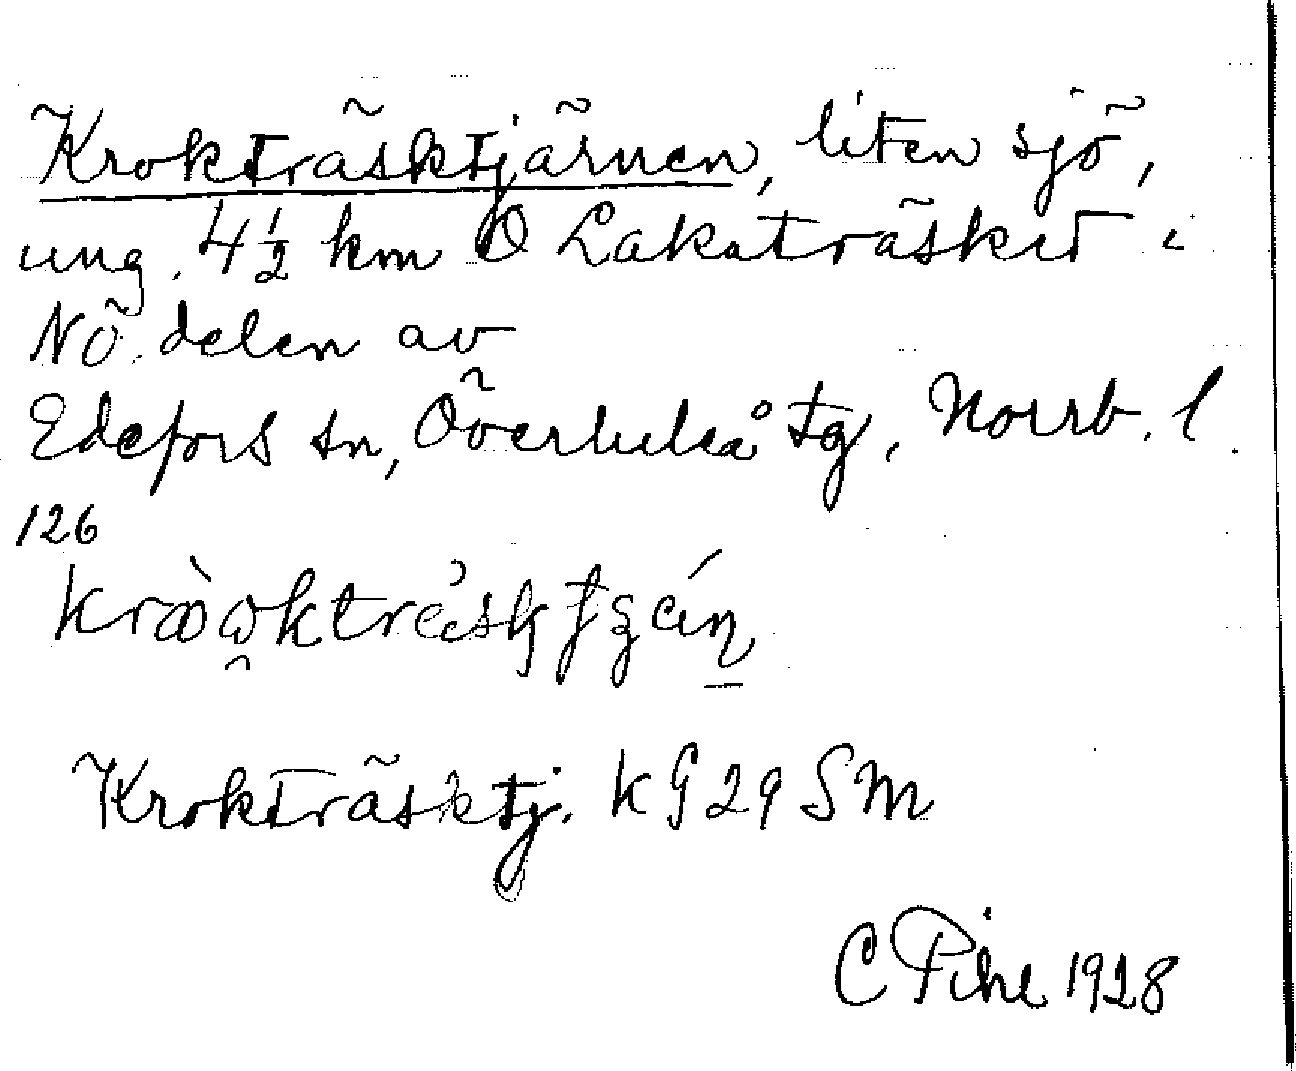 Krokträsktjärnen, liten sjö,
ung. 4½ km O Lakaträsket i
NÖ. delen av
Edefors sn, Överluleå tg, Norrb. l.
126
Krokträsktj. KG 29 SM
C Pihl 1928